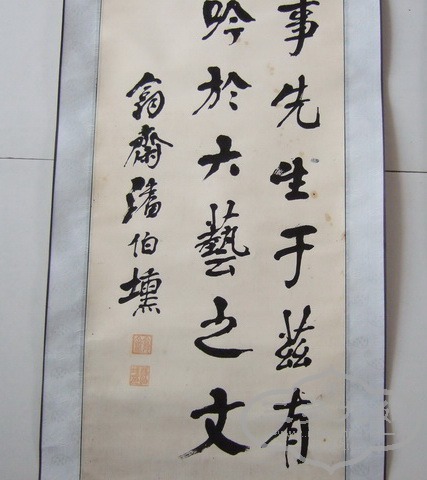 事先生于茲有
吟於大藝之文
翕齋潘伯壎